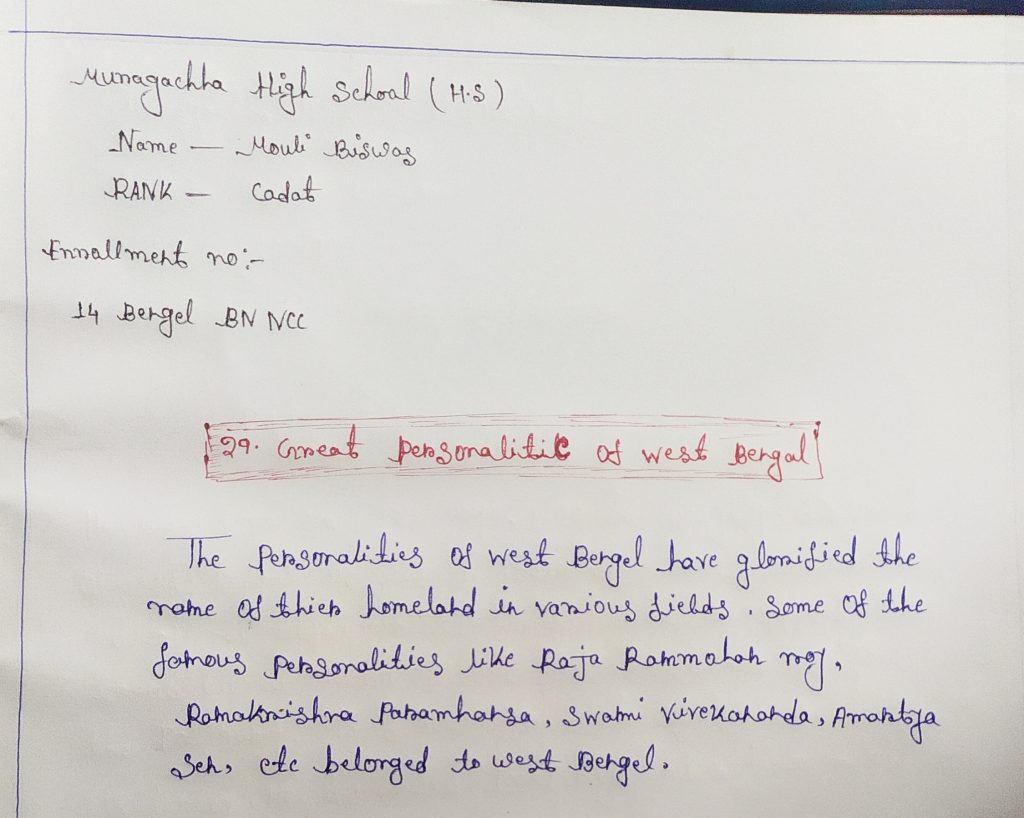 Muragachha High School (H.S)
Name — Mouli Biswas
RANK — Cadat
Enrallment no:-
14 Bengel BN NCC
29. Great personalitie of west Bengal
The personalities of west Bengel have glorified the
name of thier homeland in various fields. Some of the
famous personalities like Raja Rammohan roy,
Ramakrishna Paramhansa, Swami Vivekananda, Amartya
Sen, etc belonged to west Bengel.